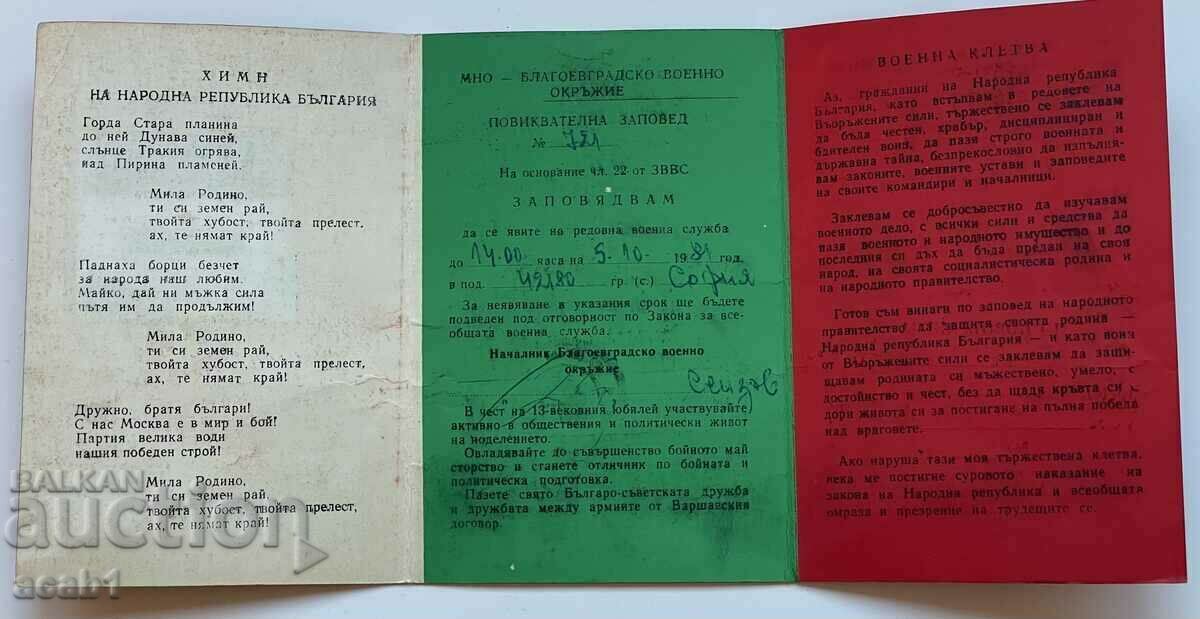 ХИМН
НА НАРОДНА РЕПУБЛИКА БЪЛГАРИЯ
Горда Стара планина
до ней Дунава синей,
слънце Тракия огрява,
над Пирина пламеней.
Мила Родино,
ти си земен рай,
твойта хубост, твойта прелест,
ах, те нямат край!
Паднаха борци безчет
за народа наш любим.
Майко, дай ни мъжка сила
пътя им да продължим!
Мила Родино,
ти си земен рай,
твойта хубост, твойта прелест,
ах, те нямат край!
Дружно, братя българи!
С нас Москва е в мир и бой!
Партия велика води
нашия победен строй!
Мила Родино,
ти си земен рай,
твойта хубост, твойта прелест,
ах, те нямат край!
МНО — БЛАГОЕВГРАДСКО ВОЕННО
ОКРЪЖИЕ
ПОВИКВАТЕЛНА ЗАПОВЕД
№ 721
На основание чл. 22 от ЗВВС
ЗАПОВЯДВАМ
да се явите на редовна военна служба
до 14.00 часа на 5.10. 1981 год.
в под. 42180 гр. (с.) София
За неявяване в указания срок ще бъдете
подведен под отговорност по Закона за все-
общата военна служба.
Началник Благоевградско военно
окръжие
В чест на 13-вековния юбилей участвувайте
активно в обществения и политически живот
на поделението.
Овладявайте до съвършенство бойното май
сторство и станете отличник по бойната и
политическа подготовка.
Пазете свято Българо-съветската дружба
и дружбата между армиите от Варшавския
договор.
ВОЕННА КЛЕТВА
Аз, гражданин на Народна република
България, като встъпвам в редовете на
Въоръжените сили, тържествено се заклевам
да бъда честен, храбър, дисциплиниран и
бдителен воин, да пазя строго военната и
държавна тайна, безпрекословно да изпълня-
вам законите, военните устави и заповедите
на своите командири и началници.
Заклевам се добросъвестно да изучавам
военното дело, с всички сили и средства да
пазя военното и народното имущество и до
последния си дъх да бъда предан на своя
народ, на своята социалистическа родина и
на народното правителство.
Готов съм винаги по заповед на народното
правителство да защитя своята родина —
Народна република България — и като воин
от Въоръжените сили се заклевам да защи-
щавам родината си мъжествено, умело, с
достойнство и чест, без да щадя кръвта си и
дори живота си за постигане на пълна победа
над враговете.
Ако наруша тази моя тържествена клетва,
нека ме постигне суровото наказание на
закона на Народна република и всеобщата
омраза и презрение на трудещите се.
BALKAN
auction
acab1